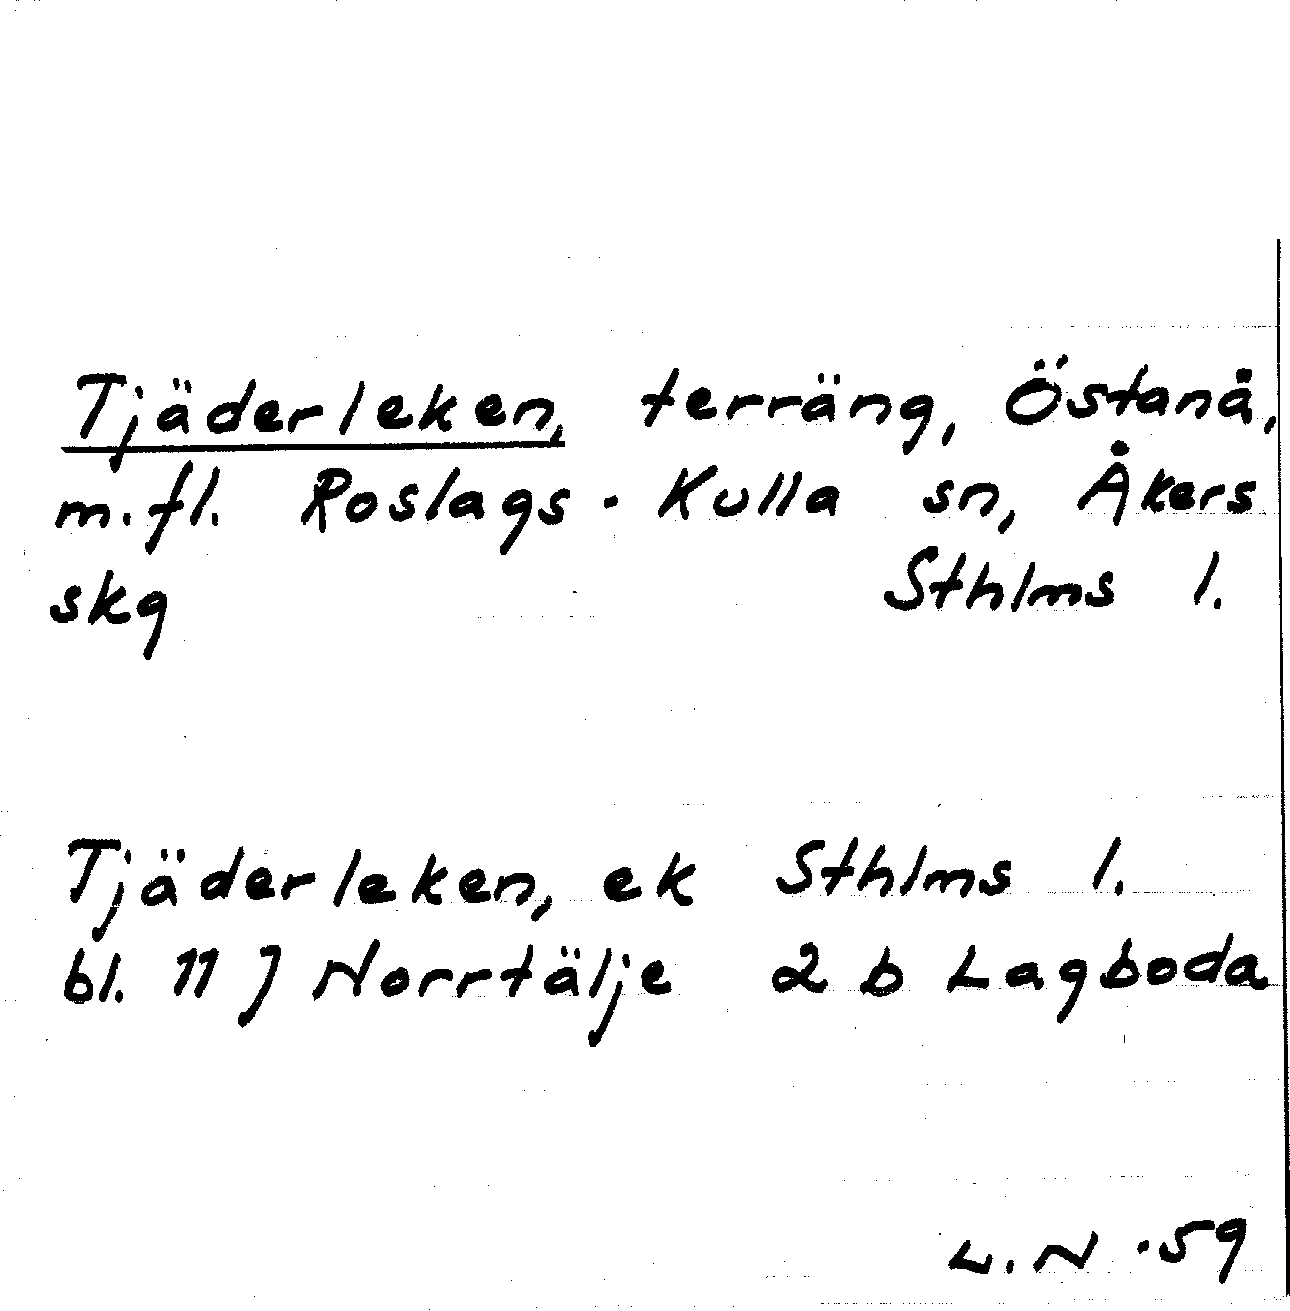 Tjäderleken, terräng, Östanå,
m.fl. Roslags-Kulla sn, Åkers
skg Sthlms l.
Tjäderleken, ek Sthlms l.
bl. 11 J Norrtälje 2 b Lagboda
L.N.59